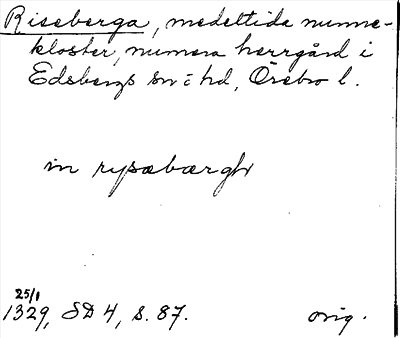 Riseberga, medeltida nunne-
kloster, numera herrgård i
Edsbergs sn o hd, Örebro l.
in rysæbærgh
25/1
1329, SD 4, s. 87. orig.